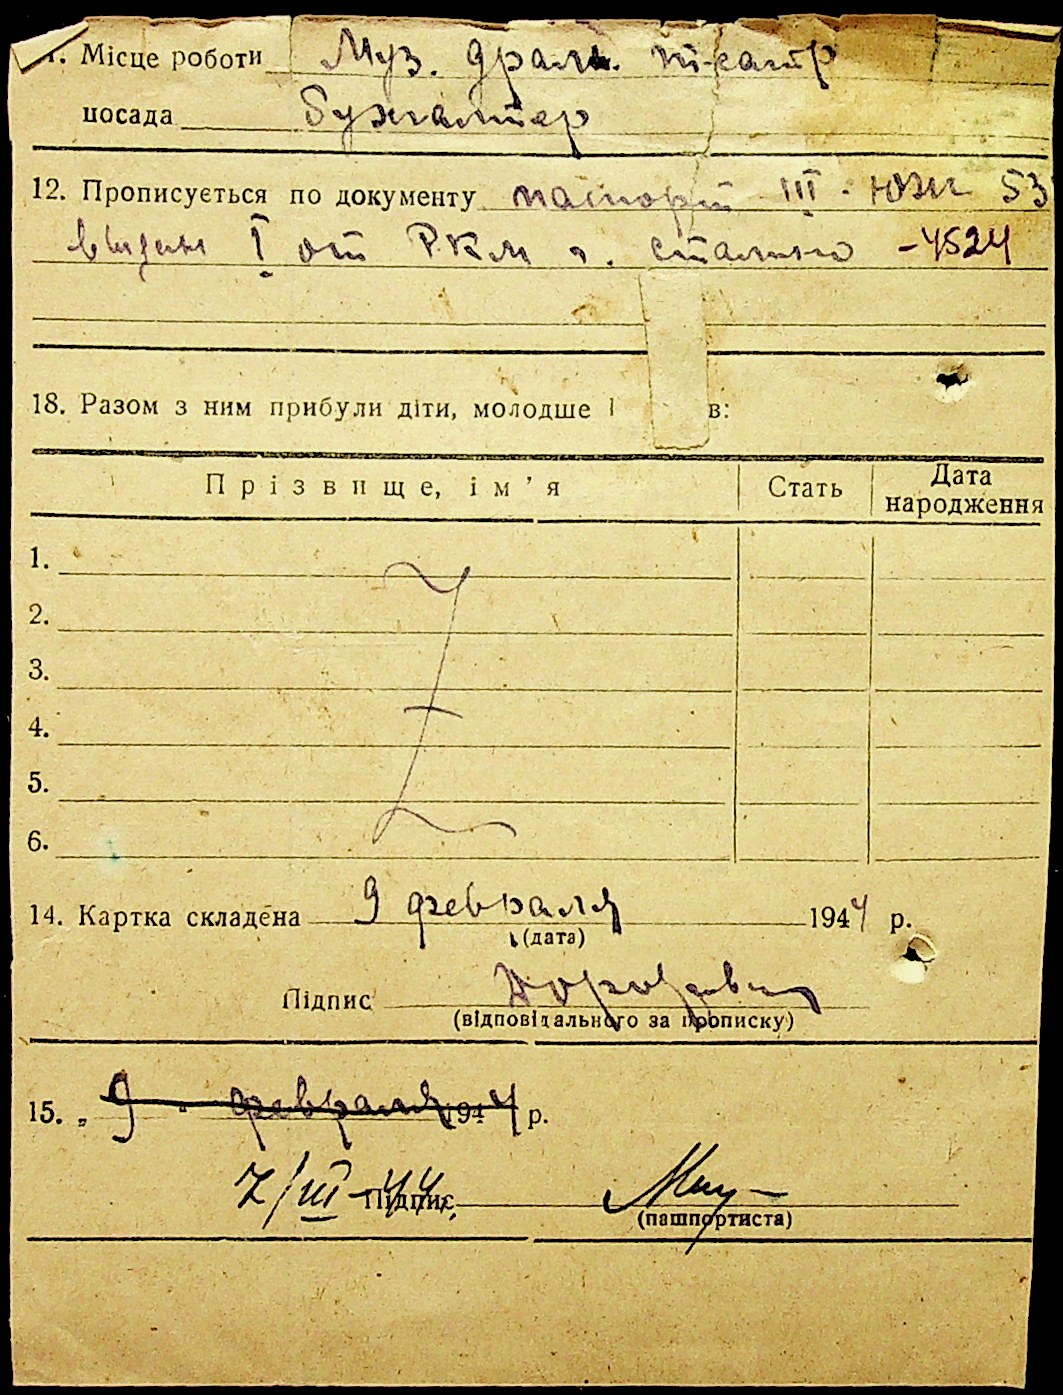 1. Місце роботи Муз. драм. театр
посада бухгалтер
12. Прописується по документу паспорт III - ЮЖ 53
выдан I от РКМ г. Сталино -4524
18. Разом з ним прибули діти, молодше 1 в:
Прізвище, ім'я Стать Дата народження
1.
2.
3.
4.
5.
6.
14. Картка складена 9 февраля 1944 р.
(дата)
Підпис
(відповідального за прописку)
15. „ 9 " февраля 1944 р.
7/III-44. Підпис
(пашпортиста)